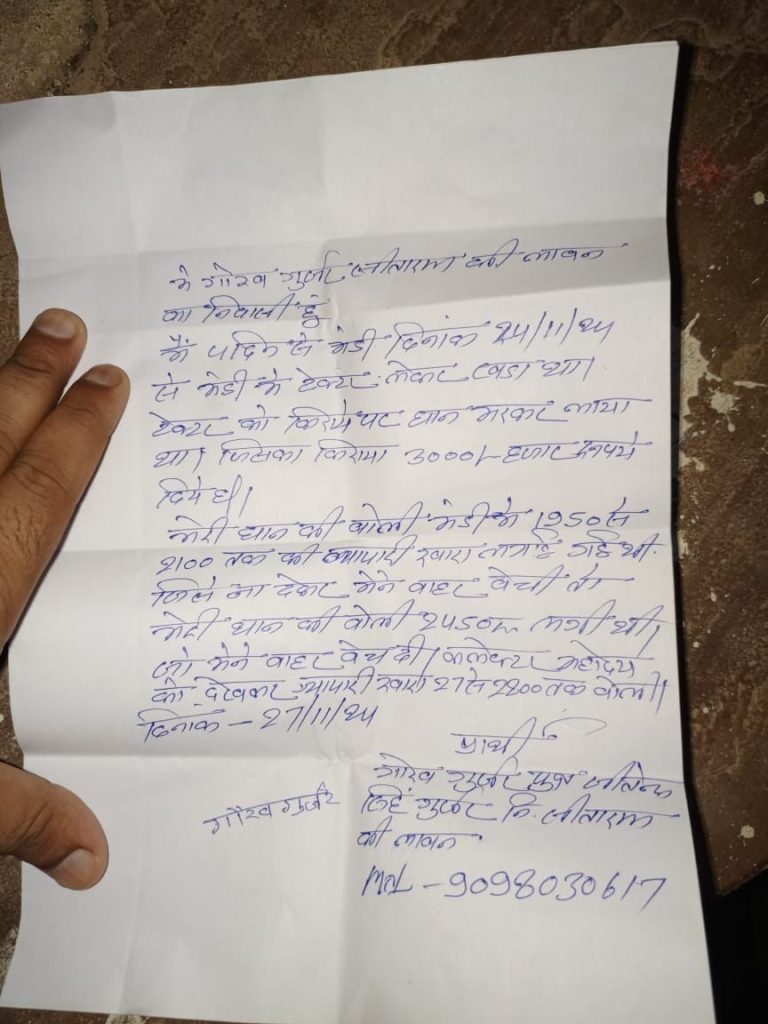 मे गौरव गुर्जर सीताराम की लावन
का निवासी हुं
मैं ५ दिन से मंडी दिनांक २५/11/२५
से मंडी मे टेक्टर लेकर खडा था।
टेक्टर को किराये पर धान भरकर लाया
था। जिसका किराया 3000/- हजार रूपये
दिये है।
मेरी धान की बोली मंडी मे 1950 से
२100 तक की व्यापारी द्वारा लगाई गई थी.
जिसे ना देकर मेने बाहर बेची तो
मेरी धान की बोली २५50 लगी थी।
जो मेने बाहर बेच दी। कलेक्टर महोदय
को देखकर व्यापारी द्वारा 27 से २८00 तक बोली।
दिनांक - 27/11/२५
प्रार्थी
गौरव गुर्जर पुत्र जितेन्द्र
सिंह गुर्जर नि. सीताराम
की लावन
गौरव गुर्जर
Mol - 9098030617